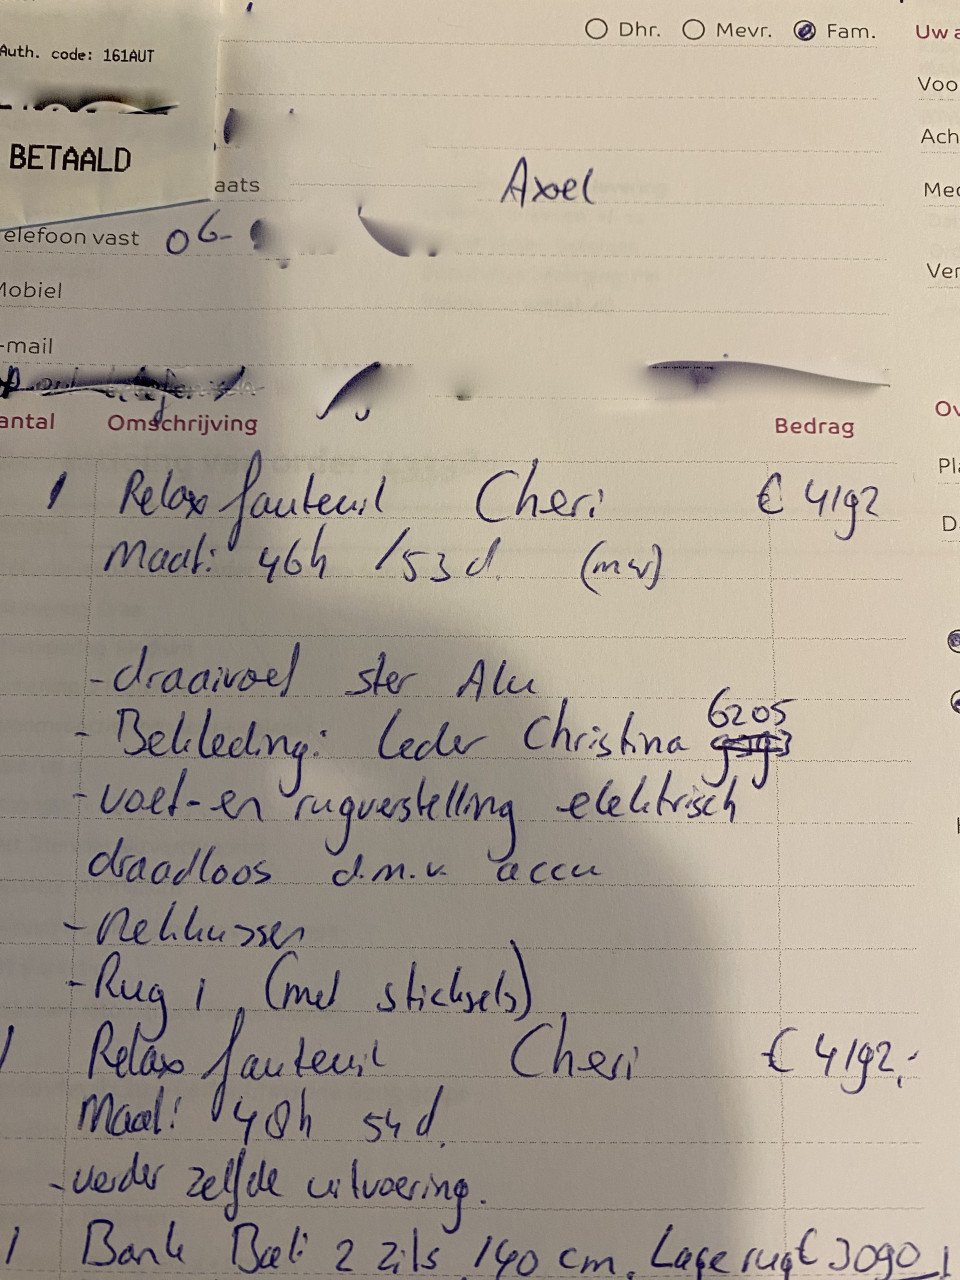 Dhr. Mevr. Fam.
Uw a
Auth. code: 161AUT
Voo
BETAALD
Ach
aats Axel
Med
elefoon vast 06-
Ver
Mobiel
-mail
antal Omschrijving Bedrag
Ov
1 Relax fauteuil Cheri € 4192
Pla
Maat: 46h /53d. (mw)
D
- draaivoet ster Alu
6205
- Bekleding: leder Christina
- voet- en rugverstelling elektrisch
draadloos d.m.v. accu
- Nekkussen
- Rug 1 (met stiksels)
1 Relax fauteuil Cheri € 4192,-
Maat: 48h 54d.
- verder zelfde uitvoering.
1 Bank Bali 2 zits 140 cm. Lage rug € 3090,-